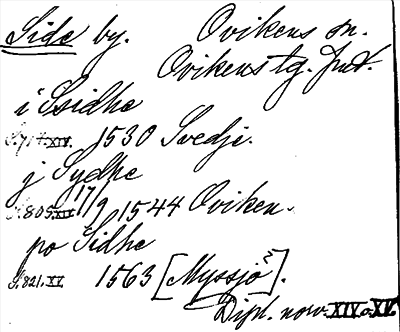 Side by. Ovikens sn.
Ovikens tg. Jmt.
i Ssidhe
S. 717. XIV. 1530 Svedje.
j Sydhe
S. 805. XIV. 17/9 1544 Oviken.
po Sidhe
S. 821. XV. 1563 [Myssjö].
Dipl. norv. XIV o. XV.